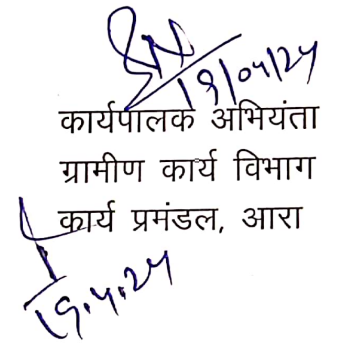 19/04/24
कार्यपालक अभियंता
ग्रामीण कार्य विभाग
कार्य प्रमंडल, आरा
19.4.24